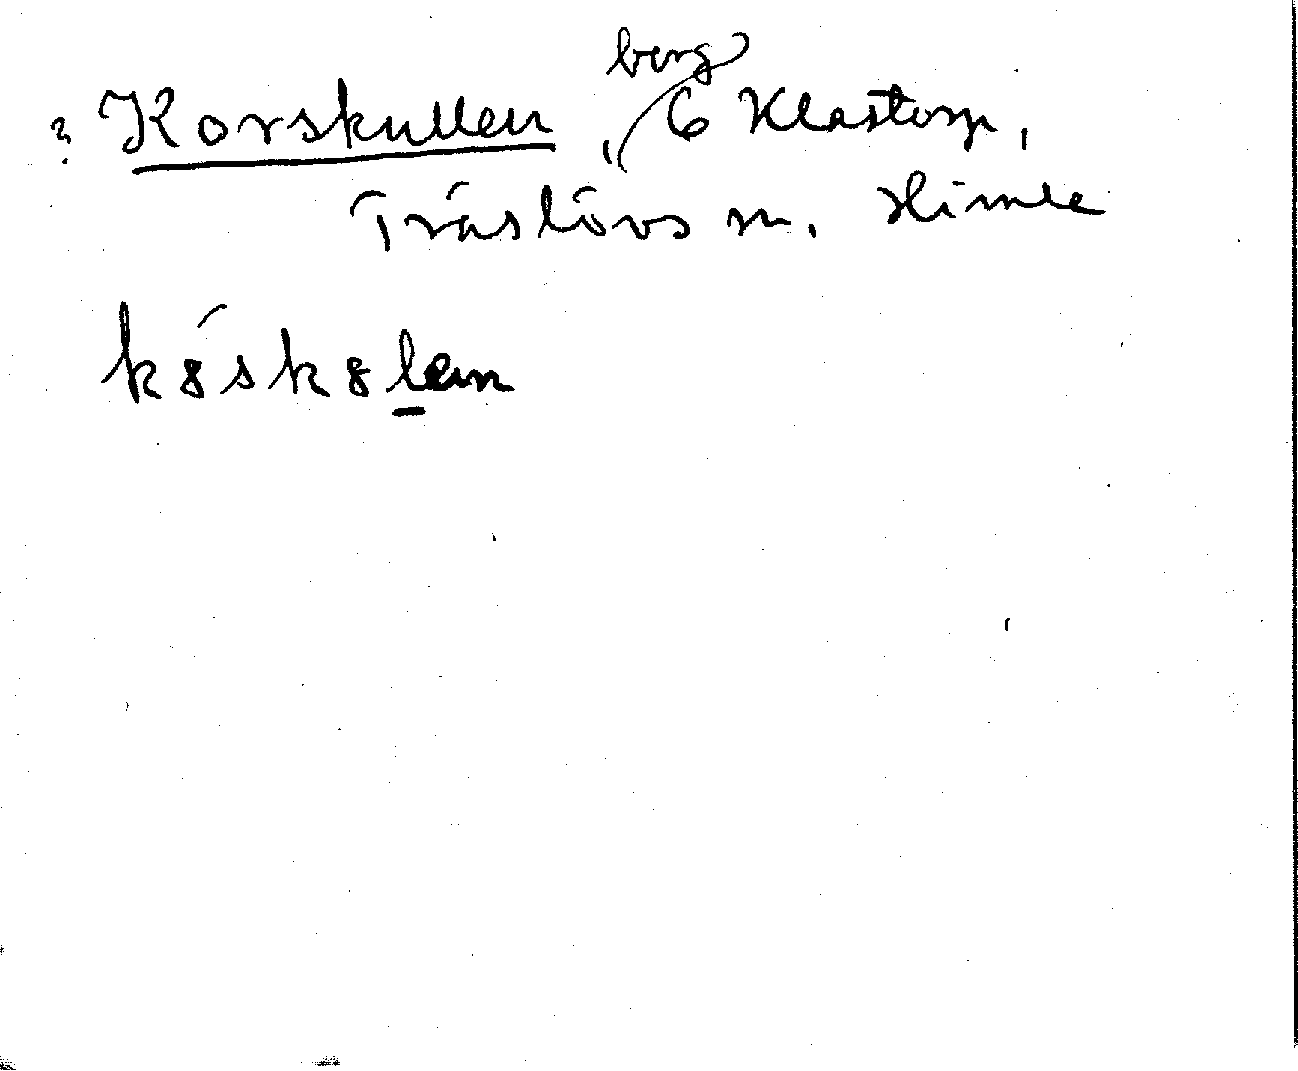 ? Korskullen, berg 6 Klastorp,
Träslövs sn. Himle
k8́sk8len